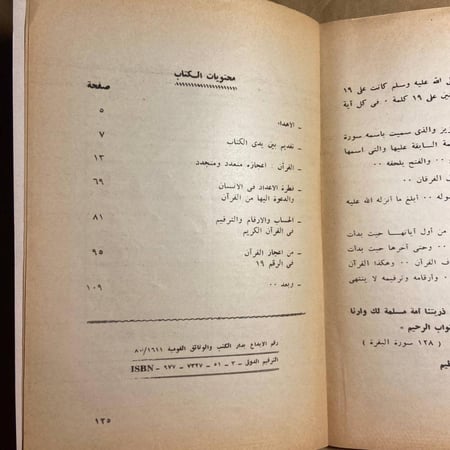 محتويات الكتاب
صفحة
ـ الاهداء ٥
ـ تقديم بين يدى الكتاب ٧
ـ القرآن : اعجازه متعدد ومتجدد ١٣
ـ فطرة الاعداد فى الانسان ٦٩
والدعوة اليها من القرآن
ـ الحساب والارقام والترقيم ٨١
فى القرآن الكريم
ـ من اعجاز القرآن ٩٥
فى الرقم ١٩
ـ وبعد ٠٠ ١٠٩
رقم الايداع بدار الكتب والوثائق القومية ٨٠/١٦٤١
الترقيم الدولى ـ ٣ ـ ٥١ ـ ٧٣٢٧ ـ ٩٧٧ ـ ISBN
١٢٥
الله عليه وسلم كانت على ١٩
على ١٩ كلمة ٠ فى كل آية
والذى سميت باسمه سورة
السابقة عليها والتى اسمها
٠٠ والفتح يلحقه ٠٠
الفرقان ٠٠
٠٠ أبلغ ما انزله الله عليه
من أول آياتها حيث بدأت
٠٠ وحتى آخرها حيث بدأت
القرآن ٠٠ وهكذا القرآن
وأرقامه وترقيمه لا ينتهى
ذريتنا أمة مسلمة لك وأرنا
الرحيم »
( ١٢٨ سورة البقرة )